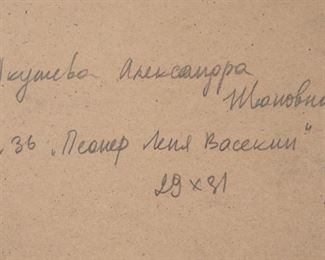 Якушева Александра
Жановна
. 36 „Пеонер Леня Васекин"
29 x 31